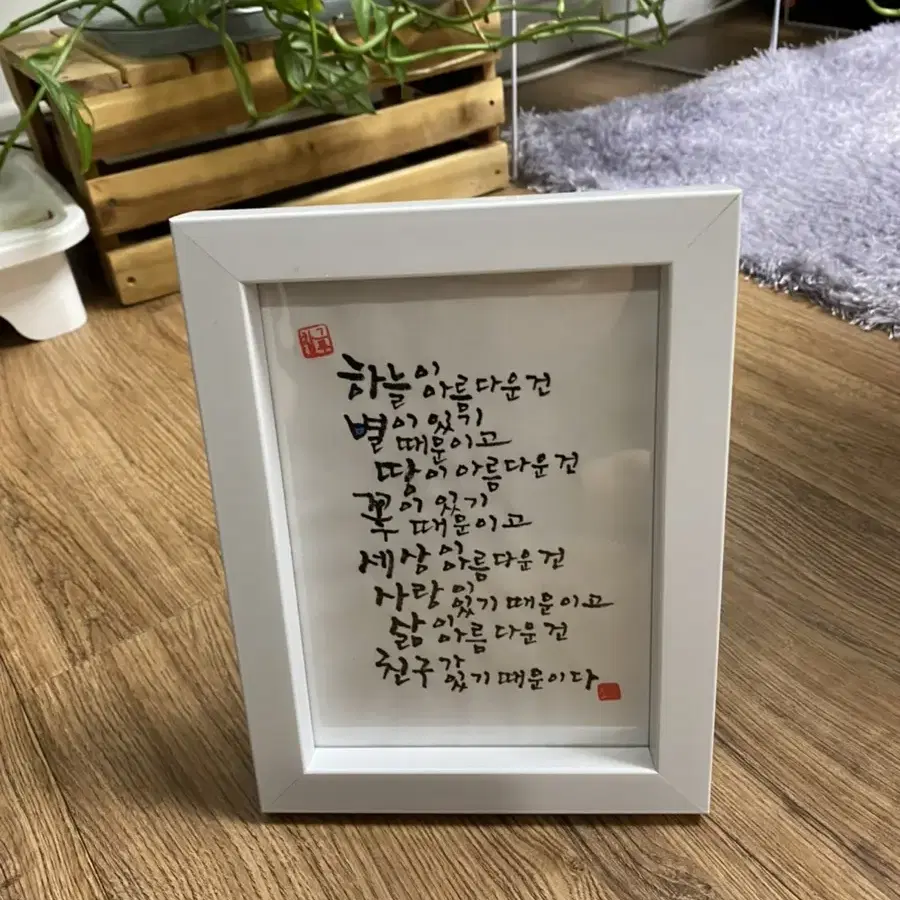 하늘이 아름다운 건
별이 있기
때문이고
땅이 아름다운 건
꽃이 있기
때문이고
세상이 아름다운 건
사랑이 있기 때문이고
삶이 아름다운 건
친구가 있기 때문이다